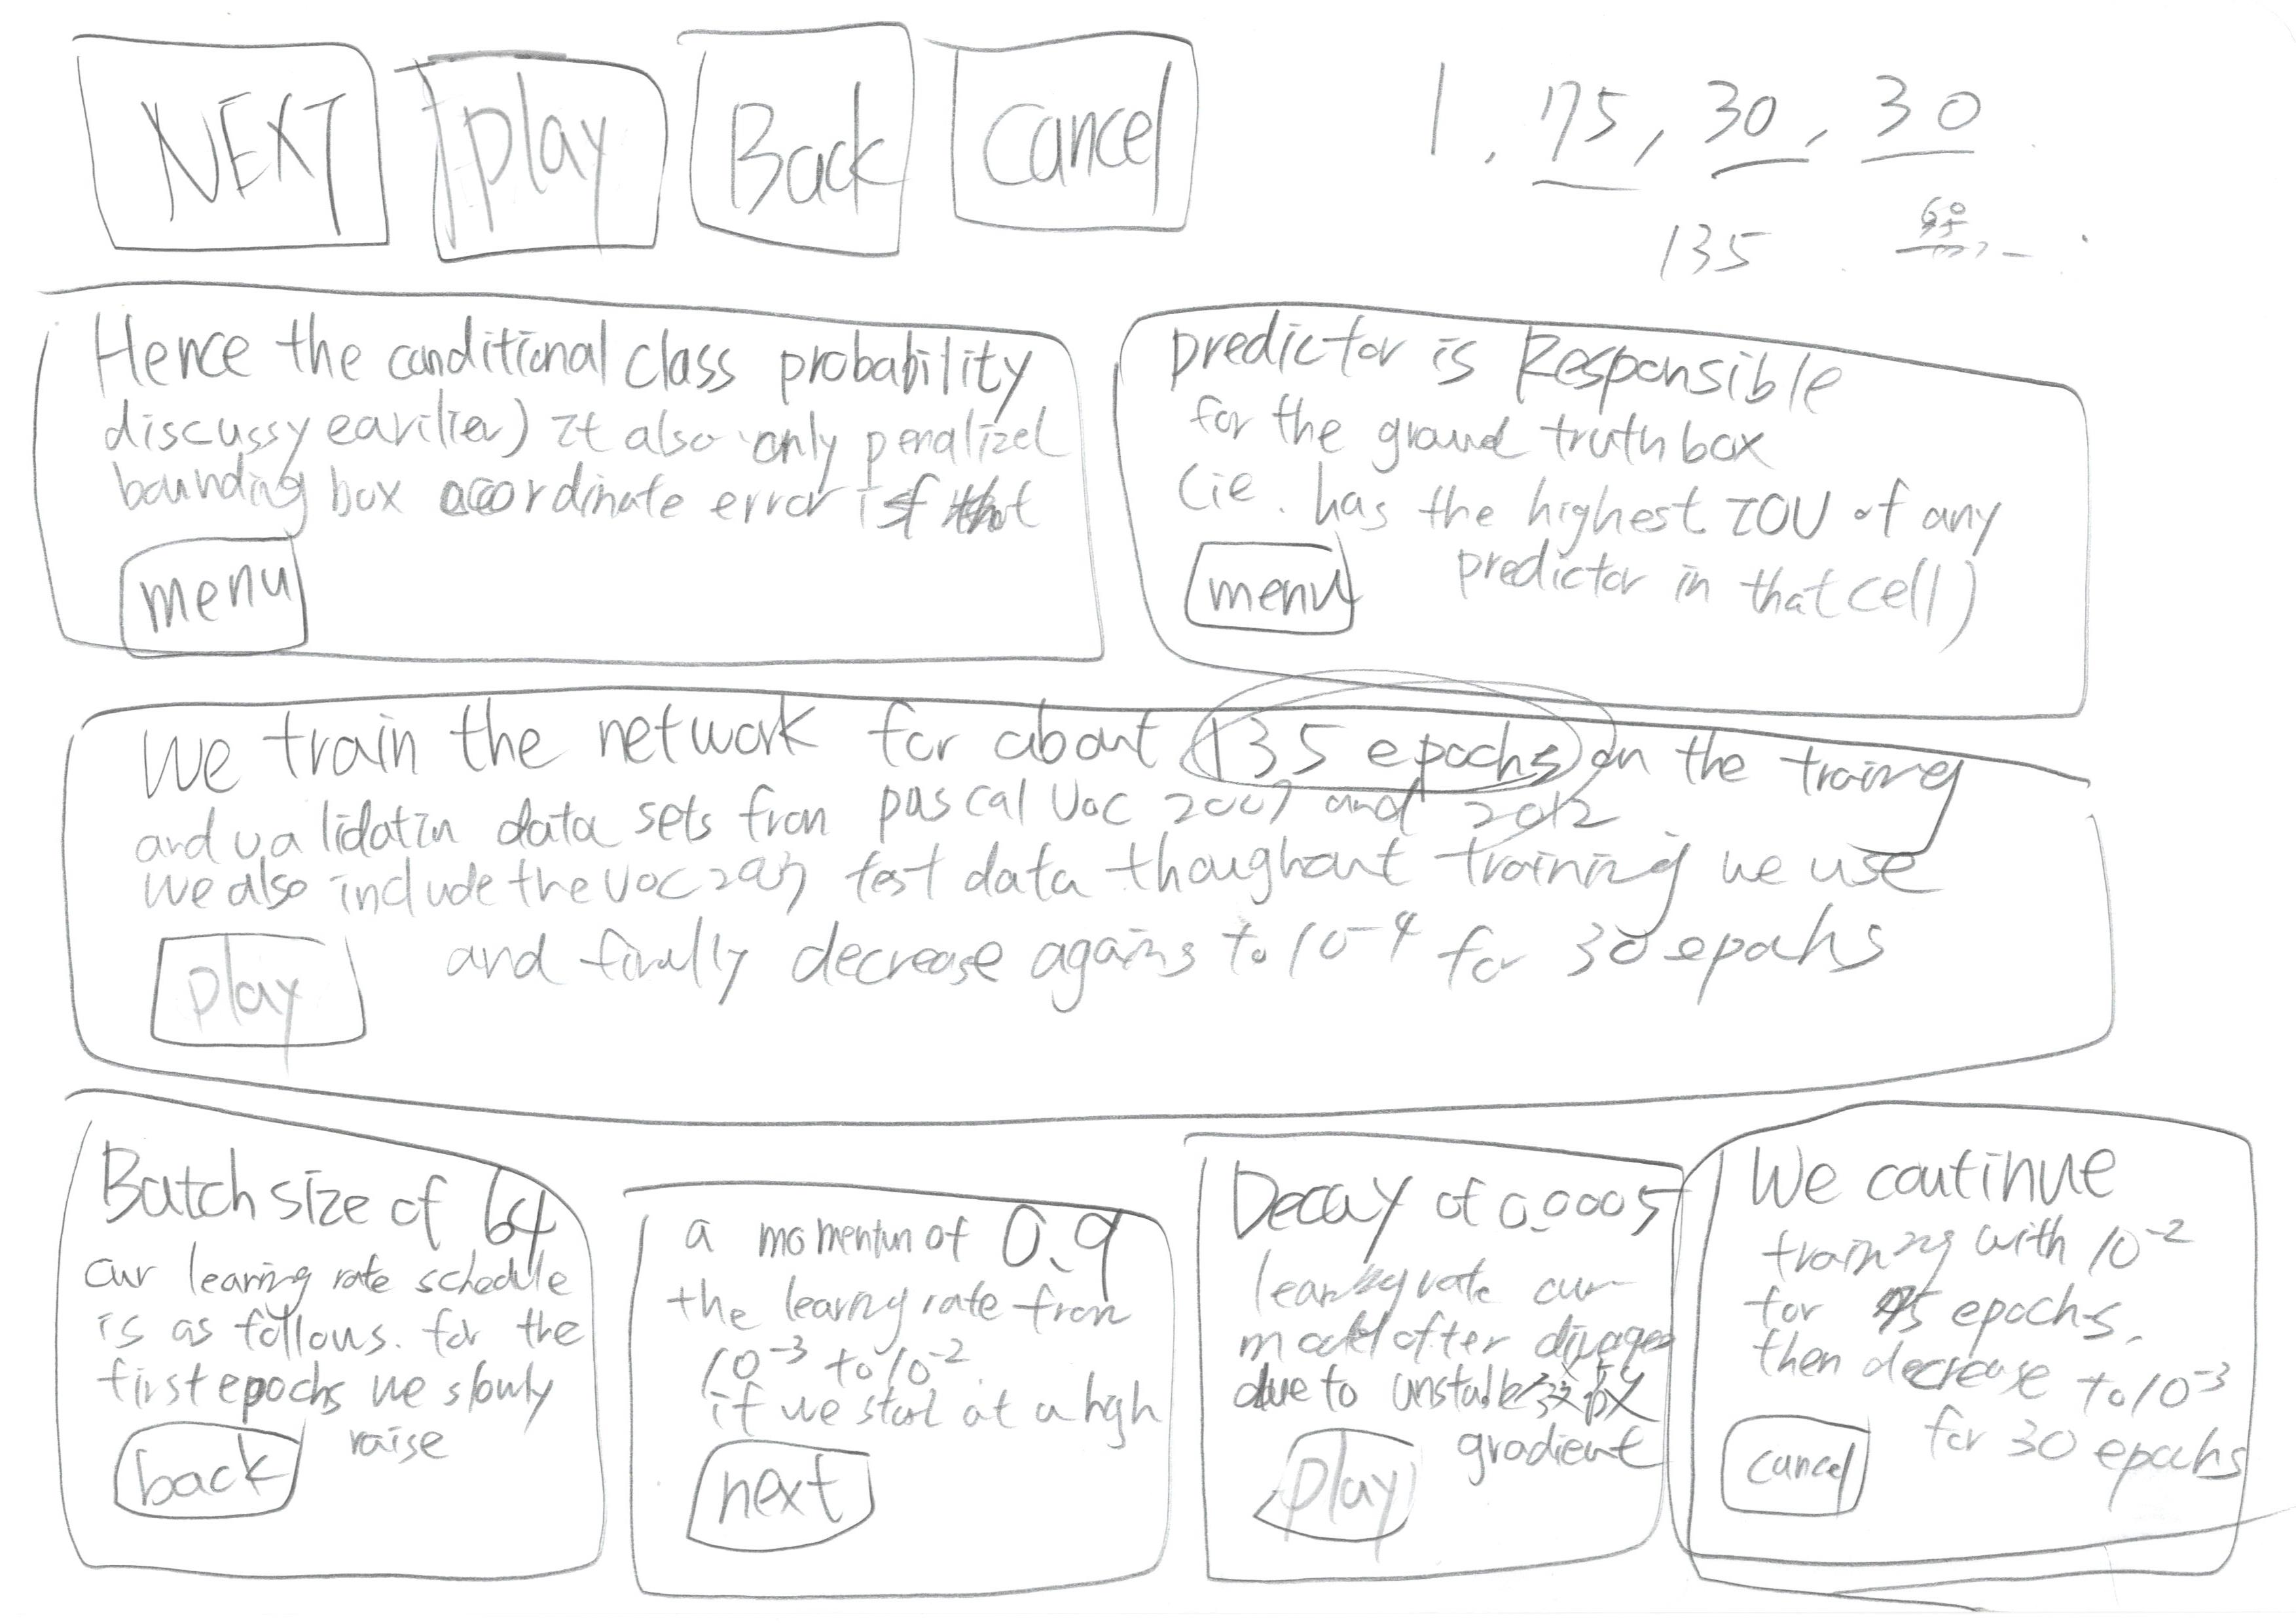 NEXT
play
Back
Cancel
1. 75, 30, 30
135
Hence the conditional class probability
discussy earilier) It also only penalizel
bounding box coordinate error if that
menu
predictor is Responsible
for the ground truth box
(ie. has the highest IOU of any
predictor in that cell)
menu
We train the network for about 135 epochs on the training
and validatin data sets from pascal VOC 2007 and 2012
We also include the VOC 2007 test data thoughout training we use
and finally decrease agains to 10-4 for 30 epochs
play
Batch size of 64
our learing rate schedule
is as follows. for the
first epochs we slowly
raise
back
a momentum of 0.9
the learing rate from
10-3 to 10-2
if we start at a high
next
Decay of 0.0005
rate our
model ofter
due to unstable
gradient
play
We coutinue
training with 10-2
for 75 epochs.
then decrease to 10-3
for 30 epochs
cancel